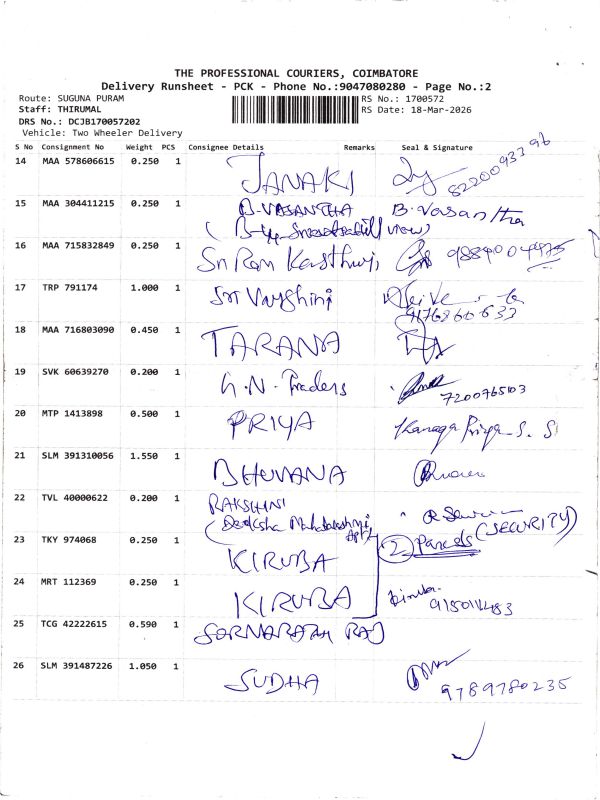 THE PROFESSIONAL COURIERS, COIMBATORE
Delivery Runsheet - PCK - Phone No.:9047080280 - Page No.:2
Route: SUGUNA PURAM
Staff: THIRUMAL
DRS No.: DCJB170057202
Vehicle: Two Wheeler Delivery
RS No.: 1700572
RS Date: 18-Mar-2026
S No Consignment No Weight PCS Consignee Details Remarks Seal & Signature
14 MAA 578606615 0.250 1 JANAKI 8220093396
15 MAA 304411215 0.250 1 B. VASANTHA B. Vasantha
16 MAA 715832849 0.250 1 Sri Ram
17 TRP 791174 1.000 1 Sri Vayshini
18 MAA 716803090 0.450 1 TARANA
19 SVK 60639270 0.200 1 G.N. Traders 7200765103
20 MTP 1413898 0.500 1 PRIYA Kanaga Priya S. S
21 SLM 391310056 1.550 1 BHUVANA
22 TVL 40000622 0.200 1 RAKSHINI
(SECURITY)
23 TKY 974068 0.250 1 KIRUBA 2 Parcels
24 MRT 112369 0.250 1 KIRUBA
25 TCG 42222615 0.590 1 RAJ
26 SLM 391487226 1.050 1 SUDHA 9789780235